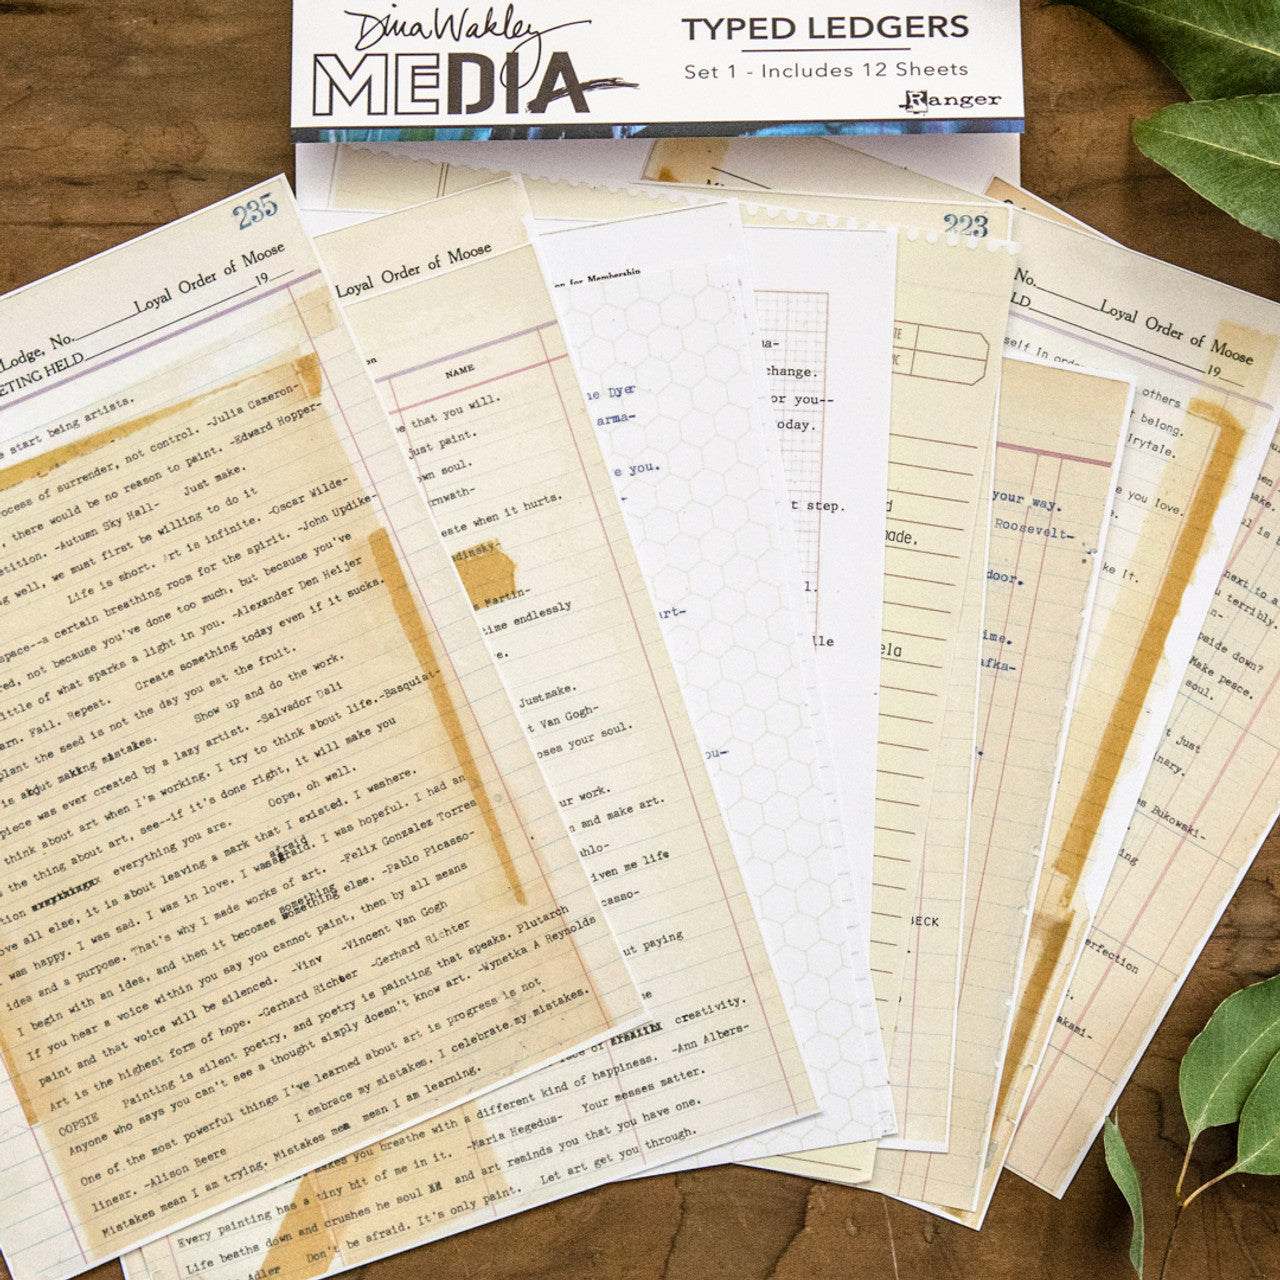 Dina Wakley
MEDIA
TYPED LEDGERS
Set 1 - Includes 12 Sheets
Ranger
235
Loyal Order of Moose
Lodge, No.
19
ETING HELD
start being artists.
ocess of surrender, not control. -Julia Cameron-
, there would be no reason to paint. -Edward Hopper-
etition. -Autumn Sky Hall- Just make.
ng well, we must first be willing to do it
Life is short. Art is infinite. -Oscar Wilde-
space--a certain breathing room for the spirit. -John Updike-
red, not because you've done too much, but because you've
ittle of what sparks a light in you. -Alexander Den Heijer
arn. Fail. Repeat. Create something today even if it sucks.
plant the seed is not the day you eat the fruit.
is about making mistakes. Show up and do the work.
piece was ever created by a lazy artist. -Salvador Dali
think about art when I'm working. I try to think about life.-Basquiat-
the thing about art, see--if it's done right, it will make you
tion everything you are. Oops, oh well.
ove all else, it is about leaving a mark that I existed. I washere.
was happy. I was sad. I was in love. I was afraid. I was hopeful. I had an
idea and a purpose. That's why I made works of art. -Felix Gonzalez Torres
I begin with an idea, and then it becomes something else. -Pablo Picasso-
If you hear a voice within you say you cannot paint, then by all means
paint and that voice will be silenced. -Vinv -Vincent Van Gogh
Art is the highest form of hope. -Gerhard Richter -Gerhard Richter
OOPSIE Painting is silent poetry, and poetry is painting that speaks. Plutarch
Anyone who says you can't see a thought simply doesn't know art. -Wynetka A Reynolds
One of the most powerful things I've learned about art is progress is not
linear. -Alison Beere I embrace my mistakes. I celebrate my mistakes.
Mistakes mean I am trying. Mistakes mea mean I am learning.
Loyal Order of Moose
on
NAME
that you will.
just paint.
own soul.
rnwath-
eate when it hurts.
ndinsky-
s Martin-
time endlessly
e.
Justmake.
t Van Gogh-
oses your soul.
ur work.
and make art.
ahlo-
iven me life
casso-
ut paying
creativity.
makes you breathe with a different kind of happiness. -Ann Albers-
Every painting has a tiny bit of me in it. -Maria Hegedus- Your messes matter.
Life beats down and crushes he soul and art reminds you that you have one.
Adler Don't be afraid. It's only paint. Let art get you through.
on for Membership
he Dyer
arma-
e you.
art-
ou-
ma-
change.
or you--
today.
t step.
l.
lle
223
ade,
ela
BECK
your way.
Roosevelt-
door.
ime.
afka-
No.
Loyal Order of Moose
LD
19
self In order
others
t belong.
irytale.
e you love.
ke It.
next to a
u terribly.
n-
pside down?
Make peace.
soul.
t just
nary.
es Bukowski-
ng
erfection
akami-